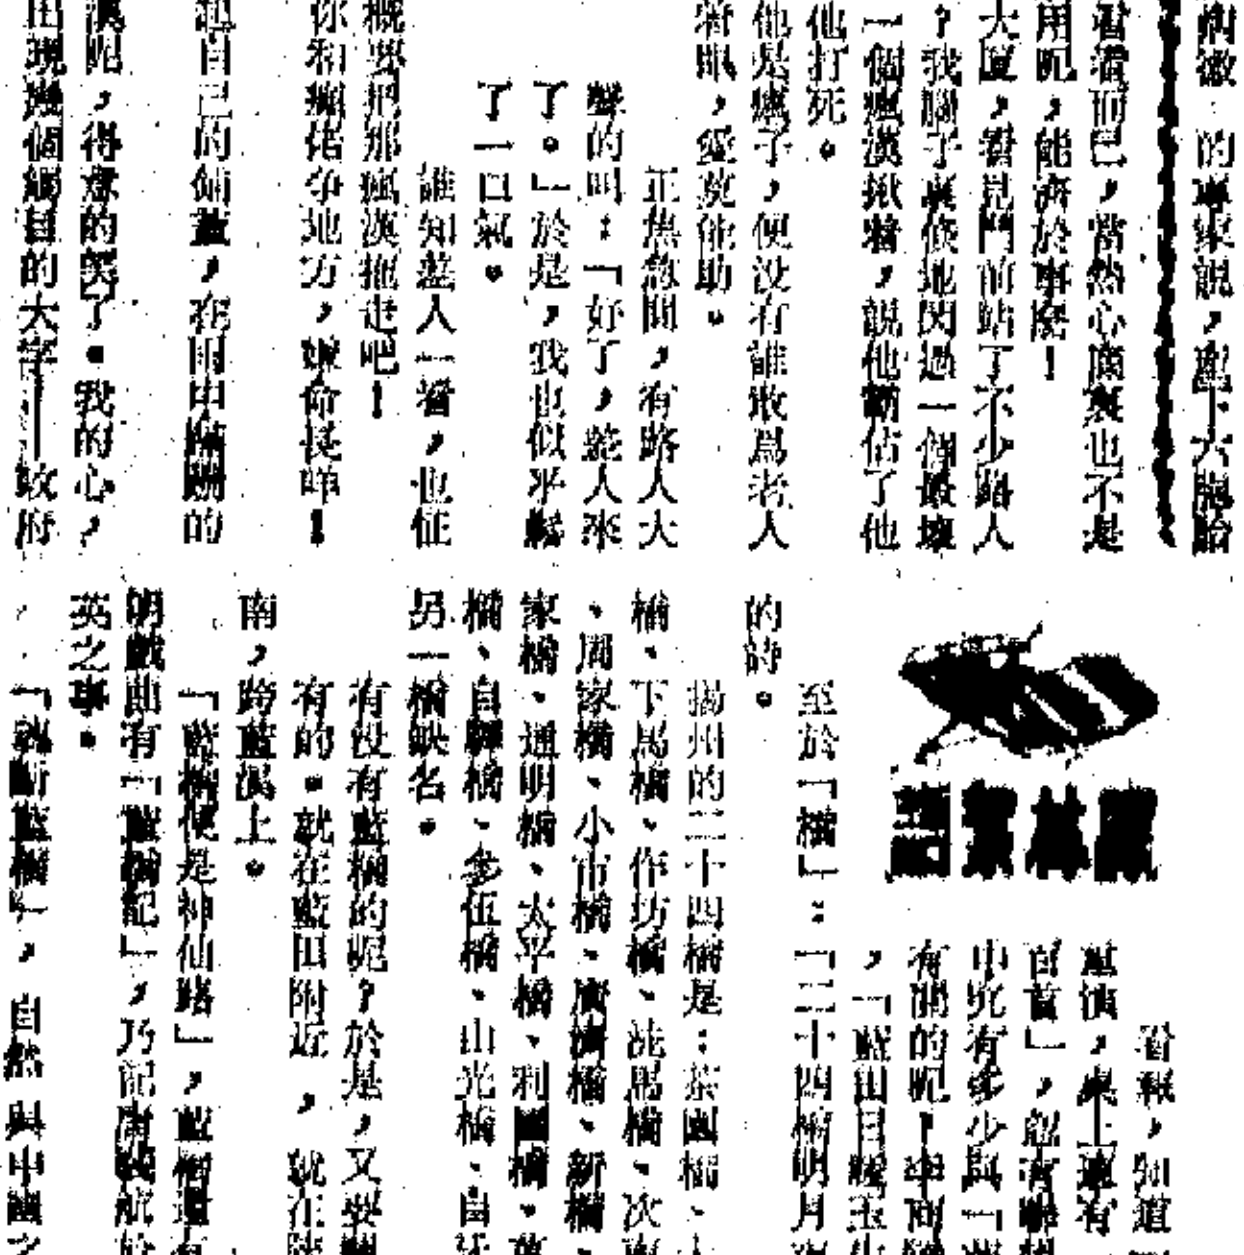 的專家說，產下六胞胎
看着而已，當然心窩裏也不是
用呢，能濟於事麼！
大廈，看見門前站了不少路人
？我腦子裏倏地閃過一個最壞
一個瘋漢揪着，說他霸佔了他
他打死。
他是瘋子，便沒有誰敢爲老人
着眼，愛莫能助。
正焦急間，有路人大
聲的叫：「好了，差人來
了。」於是，我也似乎鬆
了一口氣。
誰知差人一看，也怔
概要把那瘋漢拖走吧！
你和癲佬爭地方，嫌命長咩！
起自己的舖蓋，在雨中蹣跚的
漢呢，得意的笑了。我的心，
出現幾個觸目的大字——政府
看報，知道
重演，桌上還有
百首」，忽有聯
中究有多少與「
有關的呢！李商隱
，「藍田日暖玉生
至於「橋」：「二十四橋明月夜
的詩。
揚州的二十四橋是：茶園橋、
橋、下馬橋、作坊橋、洗馬橋、次
、周家橋、小市橋、廣濟橋、新橋、
家橋、通明橋、太平橋、利園橋、萬
橋、自驛橋、參伍橋、山光橋、自
另一橋缺名。
有沒有藍橋的呢？於是，又要翻
有的。就在藍田附近，就在陝
南，跨藍溪上。
「藍橋便是神仙路」，藍橋還有
明戲曲有「藍橋記」，乃記唐裴航於
英之事。
「魂斷藍橋」，自然與中國之